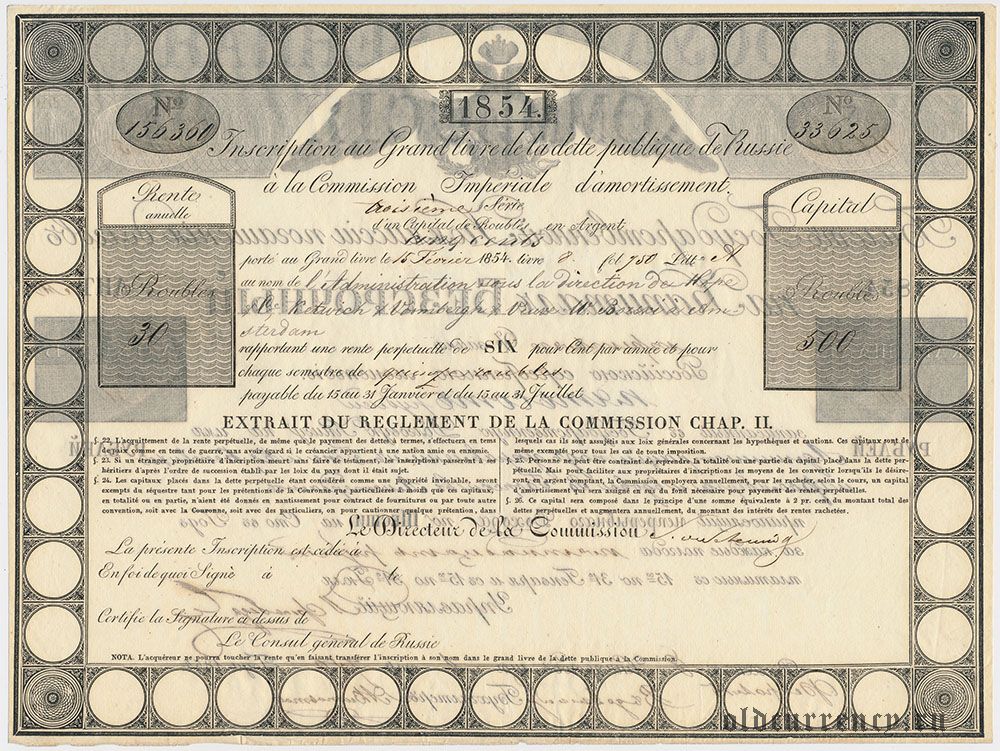 1854.
No 156360
No 33625
Inscription au Grand livre de la dette publique de Russie
à la Commission Imperiale d'amortissement.
troisième Série
d'un Capital de Roubles en Argent
cinq cents
porté au Grand livre le 15 Février 1854. livre 8. fol 750 Litt. A
au nom de l'Administration sous la direction de Hope
& Co Ketwich & Voombergh & Veuve W. Borski à Am
sterdam
rapportant une rente perpetuelle de SIX pour Cent par année et pour
chaque semestre de quinze roubles
payable du 15 au 31 Janvier et du 15 au 31 Juillet
Rente
annuelle
Roubles
30
Capital
Roubles
500
EXTRAIT DU REGLEMENT DE LA COMMISSION CHAP. II.
§. 22. L'acquittement de la rente perpétuelle, de même que le payement des dettes à termes, s'effectuera en tems
de paix comme en tems de guerre, sans avoir égard si le créancier appartient à une nation amie ou ennemie.
§. 23. Si un étranger propriétaire d'inscription meurt sans faire de testament, les inscriptions passeront à ses
héritiers d'après l'ordre de sucession établi par les loix du pays dont il était sujet.
§. 24. Les capitaux placés dans la dette perpétuelle étant considérés comme une propriété inviolable, seront
exempts du séquestre tant pour les prétentions de la Couronne que particulières à moins que ces capitaux
en totalité ou en partie, n'aient été donnés en nantissement pour contract de fournitures ou par toute autre
convention, soit avec la Couronne, soit avec des particuliers, ou pour cautionner quelque prétention, dans
lesquels cas ils sont assujéis aux loix générales concernant les hypothèques et cautions. Ces capitaux sont de
même exemptés pour tous les cas de toute imposition.
§. 25. Personne ne peut être contraint de reprendre la totalité ou une partie du capital placé dans la dette per-
pétuelle. Mais pour faciliter aux propriétaires d'inscriptions les moyens de les convertir lorsqu'ils le désire-
ront, en argent comptant, la Commission employera annuellement, pour les racheter, selon le cours, un capital
d'amortissement qui sera assigné en sus du fond nécessaire pour payement des rentes perpétuelles.
§. 26. Ce capital sera composé dans le principe d'une somme équivalente à 2 pr. cent du montant total des
dettes perpétuelles et augmentera annuellement, du montant des intérêts des rentes rachetées.
Le Directeur de la Commission
La présente Inscription est cédée à
En foi de quoi Signé à le
Certifié la Signature ci dessus de
Le Consul général de Russie
NOTA. L'acquéreur ne pourra toucher la rente qu'en faisant transférer l'inscription à son nom dans le grand livre de la dette publique à la Commission.
oldcurrency.ru